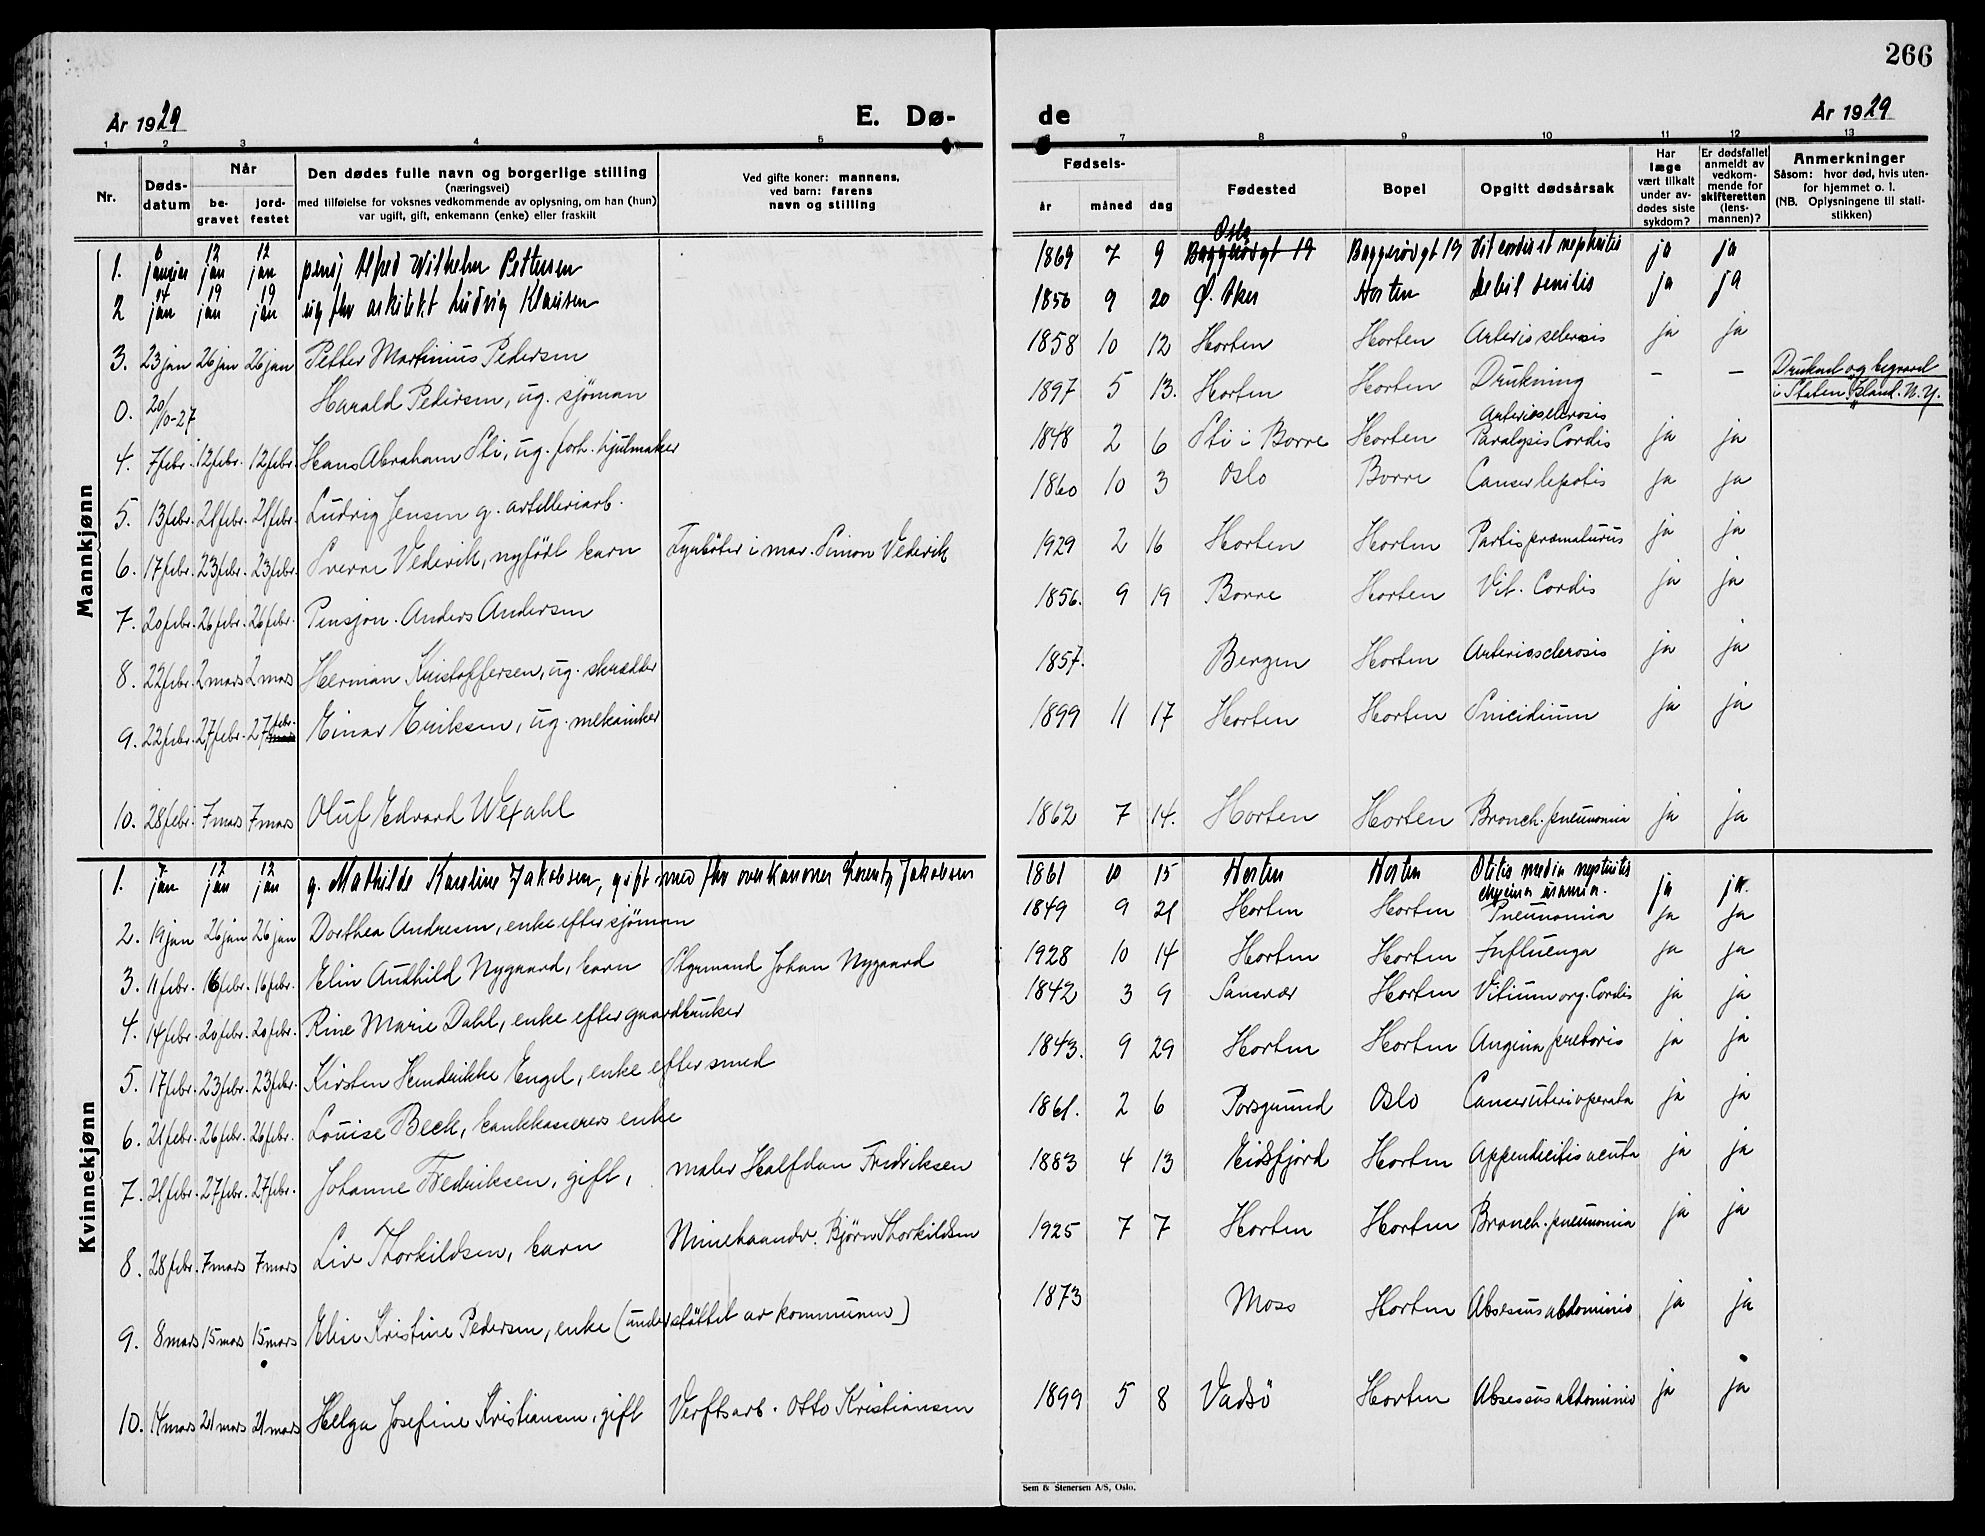 266
År 1929 E. Dø- de År 1929
1 2 3 4 5 6 7 8 9 10 11 12 13
Nr. Døds-datum Når be-gravet jord-festet Den dødes fulle navn og borgerlige stilling (næringsvei) med tilføielse for voksnes vedkommende av oplysning, om han (hun) var ugift, gift, enkemann (enke) eller fraskilt Ved gifte koner: mannens, ved barn: farens navn og stilling Fødsels- år måned dag Fødested Bopel Opgitt dødsårsak Har læge vært tilkalt under av-dødes siste sykdom? Er dødsfallet anmeldt av vedkom-mende for skifteretten (lens-mannen)? Anmerkninger Såsom: hvor død, hvis uten-for hjemmet o. l. (NB. Oplysningene til stati-stikken)
Mannkjønn
1. 6 januar 12 jan 12 jan pensj Alfred Wilhelm Pettersen 1869 7 9 Oslo Baggerødgt 19 Baggerødgt 19 Vit cordis et nephritis ja ja
2 14 jan 19 jan 19 jan ug fhv arkitekt Ludvig Klausen 1856 9 20 Ø. Aker Horten Debil senilis ja ja
3. 23 jan 26 jan 26 jan Petter Martinius Pedersen 1858 10 12 Horten Horten Arteriosclerosis ja ja
0. 20/10-27 Harald Pedersen, ug. sjöman 1897 5 13. Horten Horten Drukning — — Druknet og begravet i Staten Island. N.Y.
4. 7 febr. 12 febr. 12 febr. Hans Abraham Sti, ug. forh. hjulmaker 1848 2 6 Sti i Borre Horten Arteriosclerosis Paralysis Cordis ja ja
5. 13 febr. 21 febr. 21 febr. Ludvig Jensen g. artilleriarb. 1860 10 3 Oslo Borre Cancer hepatis ja ja
6. 17 febr. 23 febr. 23 febr. Sverre Vedvik, nyfödt barn Fyrböter i mar. Simon Vedvik 1929 2 16 Horten Horten Partus præmaturus ja ja
7. 20 febr. 26 febr. 26 febr. Pensjon. Anders Andersen 1856. 9 19 Borre Horten Vit. Cordis ja ja
8. 22 febr. 2 mars 2 mars Herman Kristoffersen, ug. skrædder 1857. Bergen Horten Arteriosclerosis ja ja
9. 22 febr. 27 febr. 27 febr. Einar Eriksen, ug. mekaniker 1899 11 17 Horten Horten Suicidium ja ja
10. 28 febr. 7 mars 7 mars Oluf Edvard Wexahl 1862 7 14. Horten Horten Bronch. pneumonia ja ja
Kvinnekjønn
1. 7 jan 12 jan 12 jan g. Mathilde Karoline Jakobsen, gift med fhv overkanoner Lorentz Jakobsen 1861 10 15 Horten Horten Otitis media nephritis uræmia. ja ja.
2. 19 jan 26 jan 26 jan Dorthea Andresen, enke efter sjöman 1849 9 21 Horten Horten Pneumonia ja ja
3. 11 febr. 16 febr. 16 febr. Elin Authild Nygaard, barn Styrmand Johan Nygaard 1928 10 14 Horten Horten Influenza ja ja
4. 14 febr. 20 febr. 20 febr. Rine Marie Dahl, enke efter gaardbruker 1842 3 9 Horten Vitium org. Cordis ja ja
5. 17 febr. 23 febr. 23 febr. Kirsten Hendrikke Engel, enke efter smed 1843. 9 29 Horten Horten Angina pectoris ja ja
6. 21 febr. 26 febr. 26 febr. Louise Beck, bankkasserers enke 1861. 2 6 Porsgrund Oslo Cancer uteri operata ja ja
7. 21 febr. 27 febr. 27 febr. Johanne Fredriksen, gift, maler Halfdan Fredriksen 1883 4 13 Eidsfjord Horten Appendicitis acuta ja ja
8. 28 febr. 7 mars 7 mars Liv Thorkildsen, barn Minehaandv. Bjørn Thorkildsen 1925 7 7 Horten Horten Bronch. pneumonia ja ja
9. 8 mars 15 mars 15 mars Elise Kristine Pedersen, enke (understöttet av kommunen) 1873 Moss Horten Absessus abdominis ja ja
10. 14 mars 21 mars 21 mars Helga Josefine Kristiansen, gift Verftsarb. Otto Kristiansen 1899 5 8 Vadsö Horten Absessus abdominis ja ja
Sem & Stenersen A/S, Oslo.